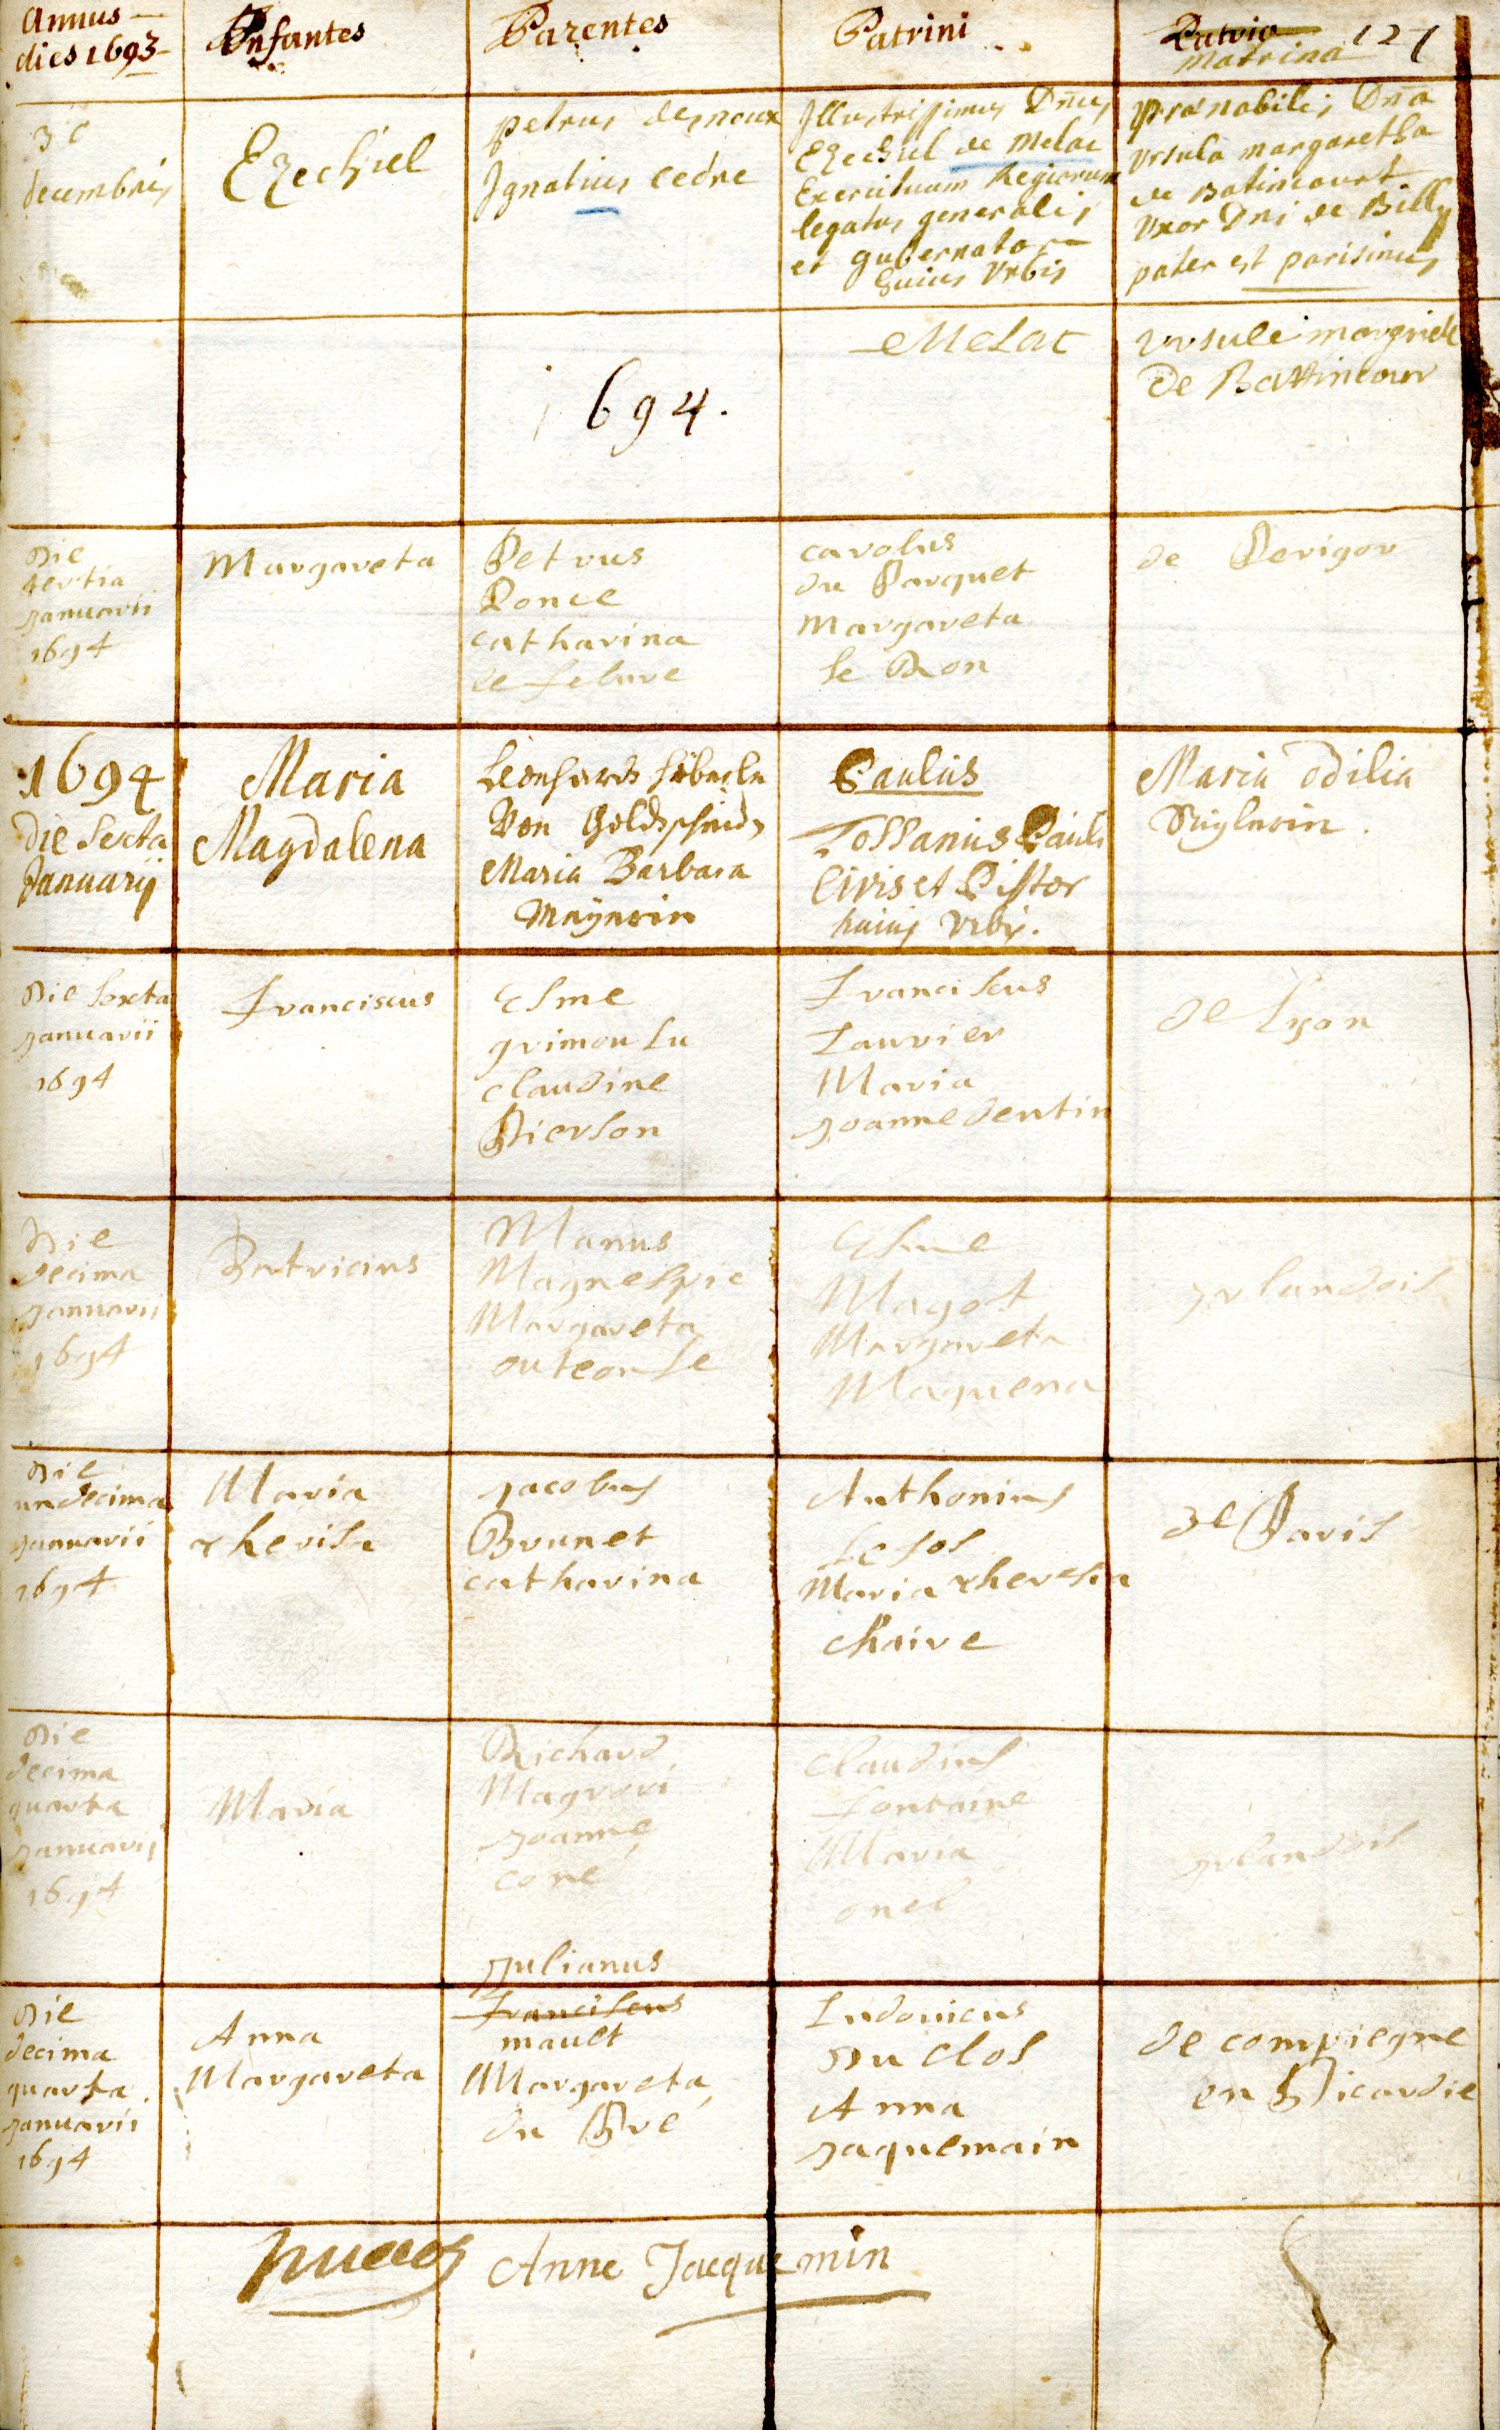 Annus
dies 1693
Infantes
Parentes
Patrini
Patria
Matrina
121
3 c
decembris
Ezechiel
petrus desnoux
Ignatius cedre
Illustrissimus Dn̄us
Ezechiel de Melac
Exercituum Regiorum
legatus generalis
et gubernator
huius Urbis
prænobilis Dn̄a
Ursula margaretha
de Batincourt
Uxor Dni de Billy
pater est parisinus
Melac
ursule margriete
De Battincour
1694.
Die
tertia
Januarii
1694
Margareta
Petrus
Ponce
catharina
le febure
carolus
du Parquet
Margareta
le Ron
de Perigor
1694
Die Sexta
Januarij
Maria
Magdalena
Leonhardt
Von Goldschmidt
Maria Barbara
Meyerin
Paulus
Tossanus Pauli
Civis et Pistor
huius Urbis.
Maria Odilia
Die sexta
Januarii
1694
Franciscus
Esme
grimou lu
claudine
Pierson
Franciscus
Laurier
Maria
Joanne dentin
de Lyon
Die
decima
Januarii
1694
Patricius
Manus
Magnelpic
Margareta
Esme
Magot
Margareta
Maquena
Irlandois
Die
undecima
Januarii
1694
Maria
therisa
Jacobus
Brunet
catharina
Anthonius
Maria theresia
chaive
de Paris
Die
decima
quarta
Januarij
1694
Maria
Richard
Magrori
Joanne
cone
claudius
fontaine
Maria
onel
Irlandois
Die
decima
quarta
Januarii
1694
Anna
Margareta
Julianus
Franciscus
mault
Margareta
du Pré
Ludovicus
Du clos
Anna
Jaquemain
de compiegne
en Picardie
Duclos
Anne Jacquemin